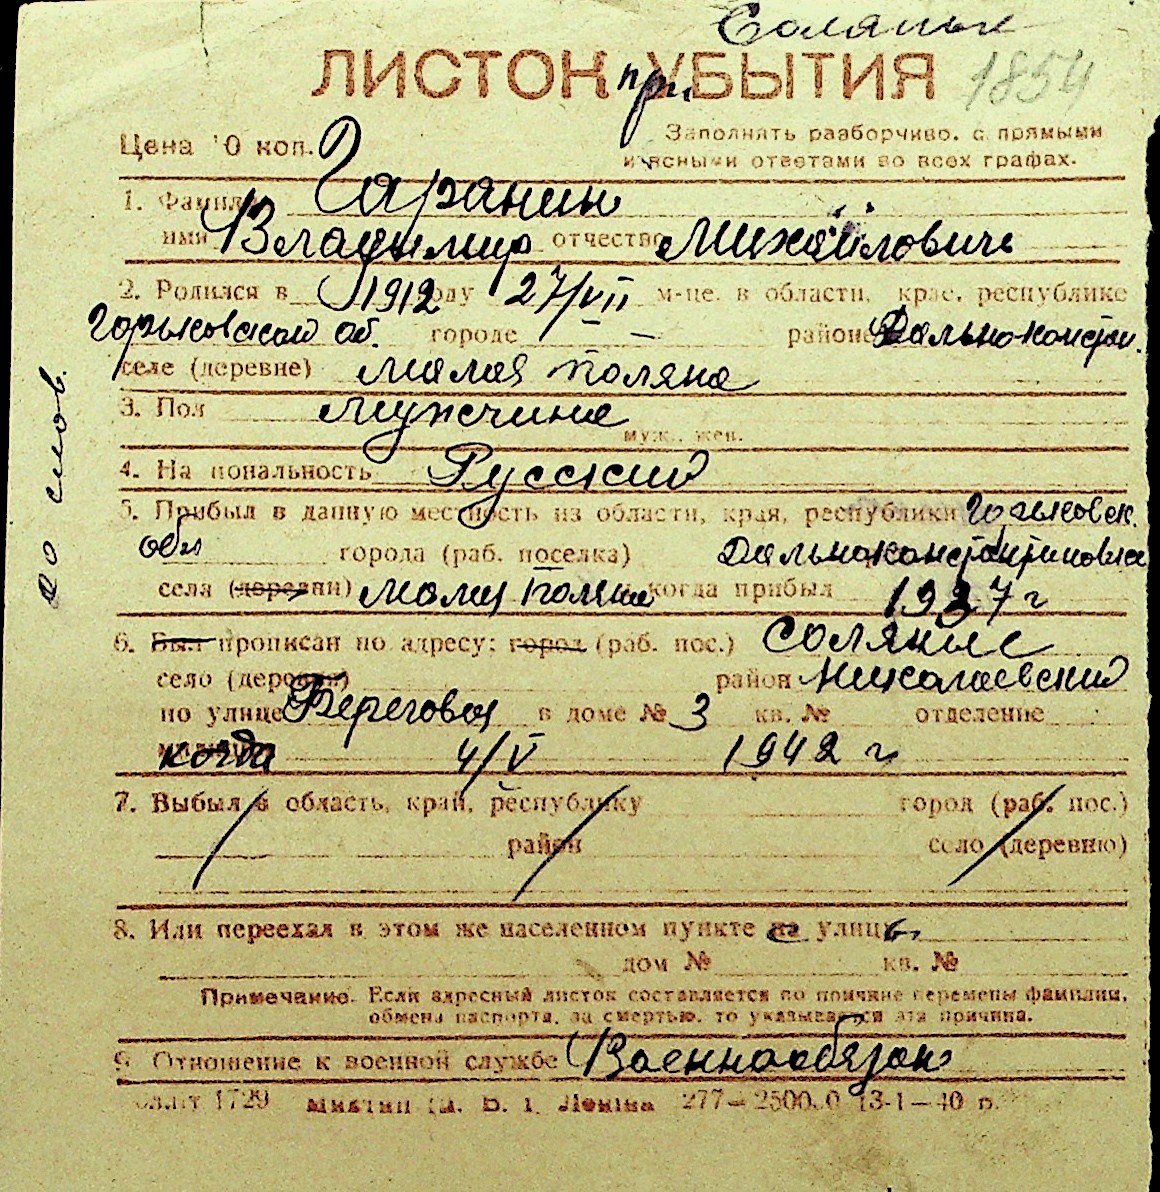 Соляные
ЛИСТОК при УБЫТИЯ 1854
Цена 10 коп. Заполнять разборчиво, с прямыми
и ясными ответами во всех графах.
1. Фамилия Гаранин
имя Владимир отчество Михайлович
2. Родился в 1912 году 27/VII м-це, в области, крае, республике
Горьковской об. городе — районе Дально-констан.
селе (деревне) Малая Поляна
3. Пол Мужчина
муж., жен.
4. Национальность Русский
5. Прибыл в данную местность из области, края, республики Горьковск.
обл города (раб. поселка) Дальноконстантиновка
села (деревни) Малая Поляна и когда прибыл 1937 г
6. Был прописан по адресу: город (раб. пос.) Соляные
село (деревня) район Николаевский
по улице Береговая в доме № 3 кв. № отделение
когда 4/V 1942 г
7. Выбыл в область, край, республику город (раб. пос.)
район село (деревню)
8. Или переехал в этом же населенном пункте на улицу
дом № кв. №
Примечание. Если адресный листок составляется по причине перемены фамилии,
обмена паспорта, за смертью, то указывается эта причина.
9. Отношение к военной службе Военнообязан
1729 Ленина 277—2500.0 13-1—40 р.